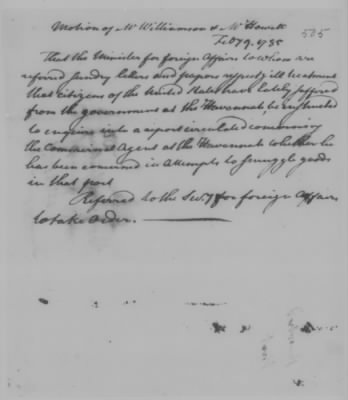 Motion of Mr Williamson & Mr Howell
505
Feby 9. 1785
That the Minister for foreign Affairs to whom are
referred sundry letters and papers respectg ill treatment
that citizens of the United States have lately suffered
from the government at the Havannah, be instructed
to enquire into a report circulated concerning
the Commercial Agent at the Havannah whether he
has been concerned in attempts to smuggle goods
in that port
Referred to the Secy for foreign Affairs
to take Order.